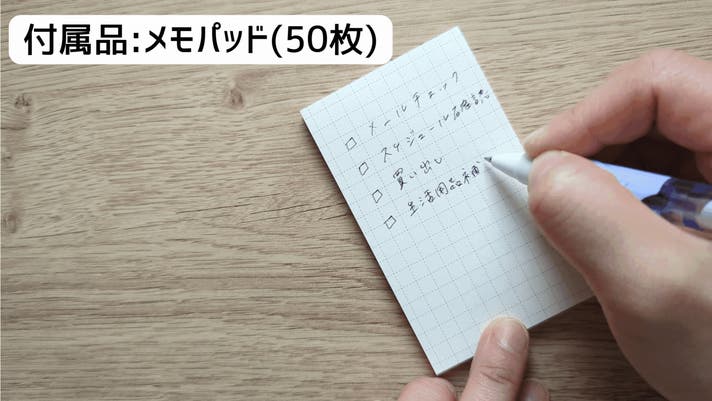 付属品:メモパッド(50枚)
□ メールチェック
□ スケジュール確認
□ 買い出し
□ 生活用品補